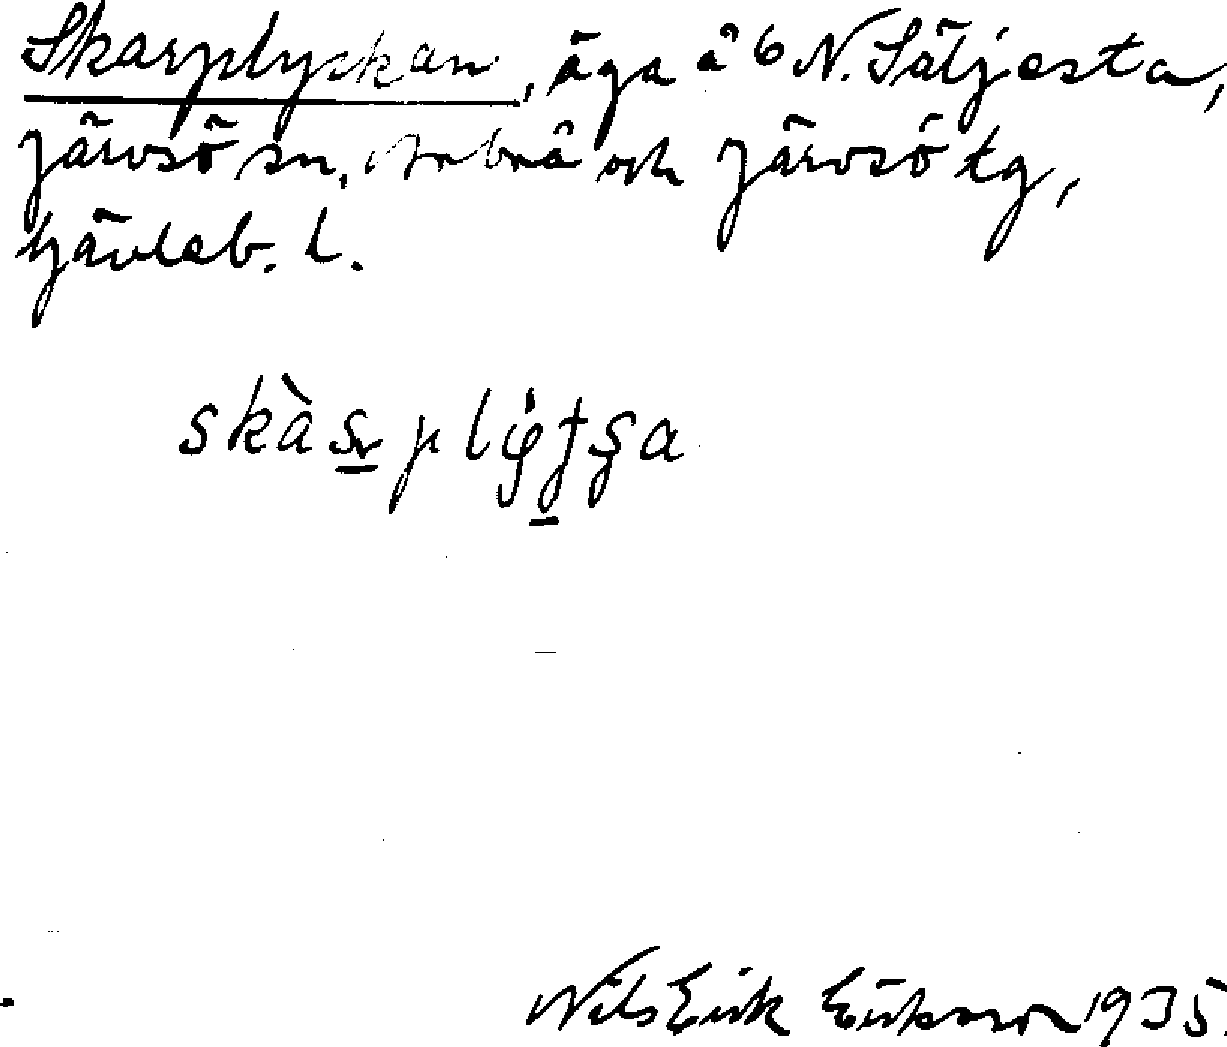 Skarplyckan, äga å 6 N. Säljesta,
Järvsö sn, Arbrå och Järvsö tg,
Gävleb. l.
Nils Erik Eriksson 1935.